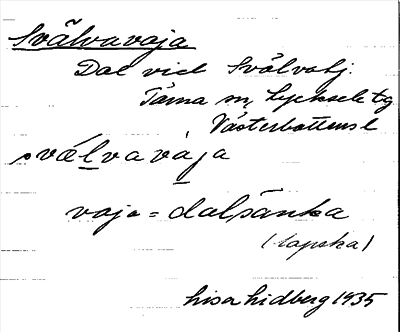 Svålvavaja
Dal vid Svålvatj.
Tärna sn, Lycksele tg
Västerbottens l
sválvavája
vaja = dalsänka
(lapska)
Lisa Lidberg 1935